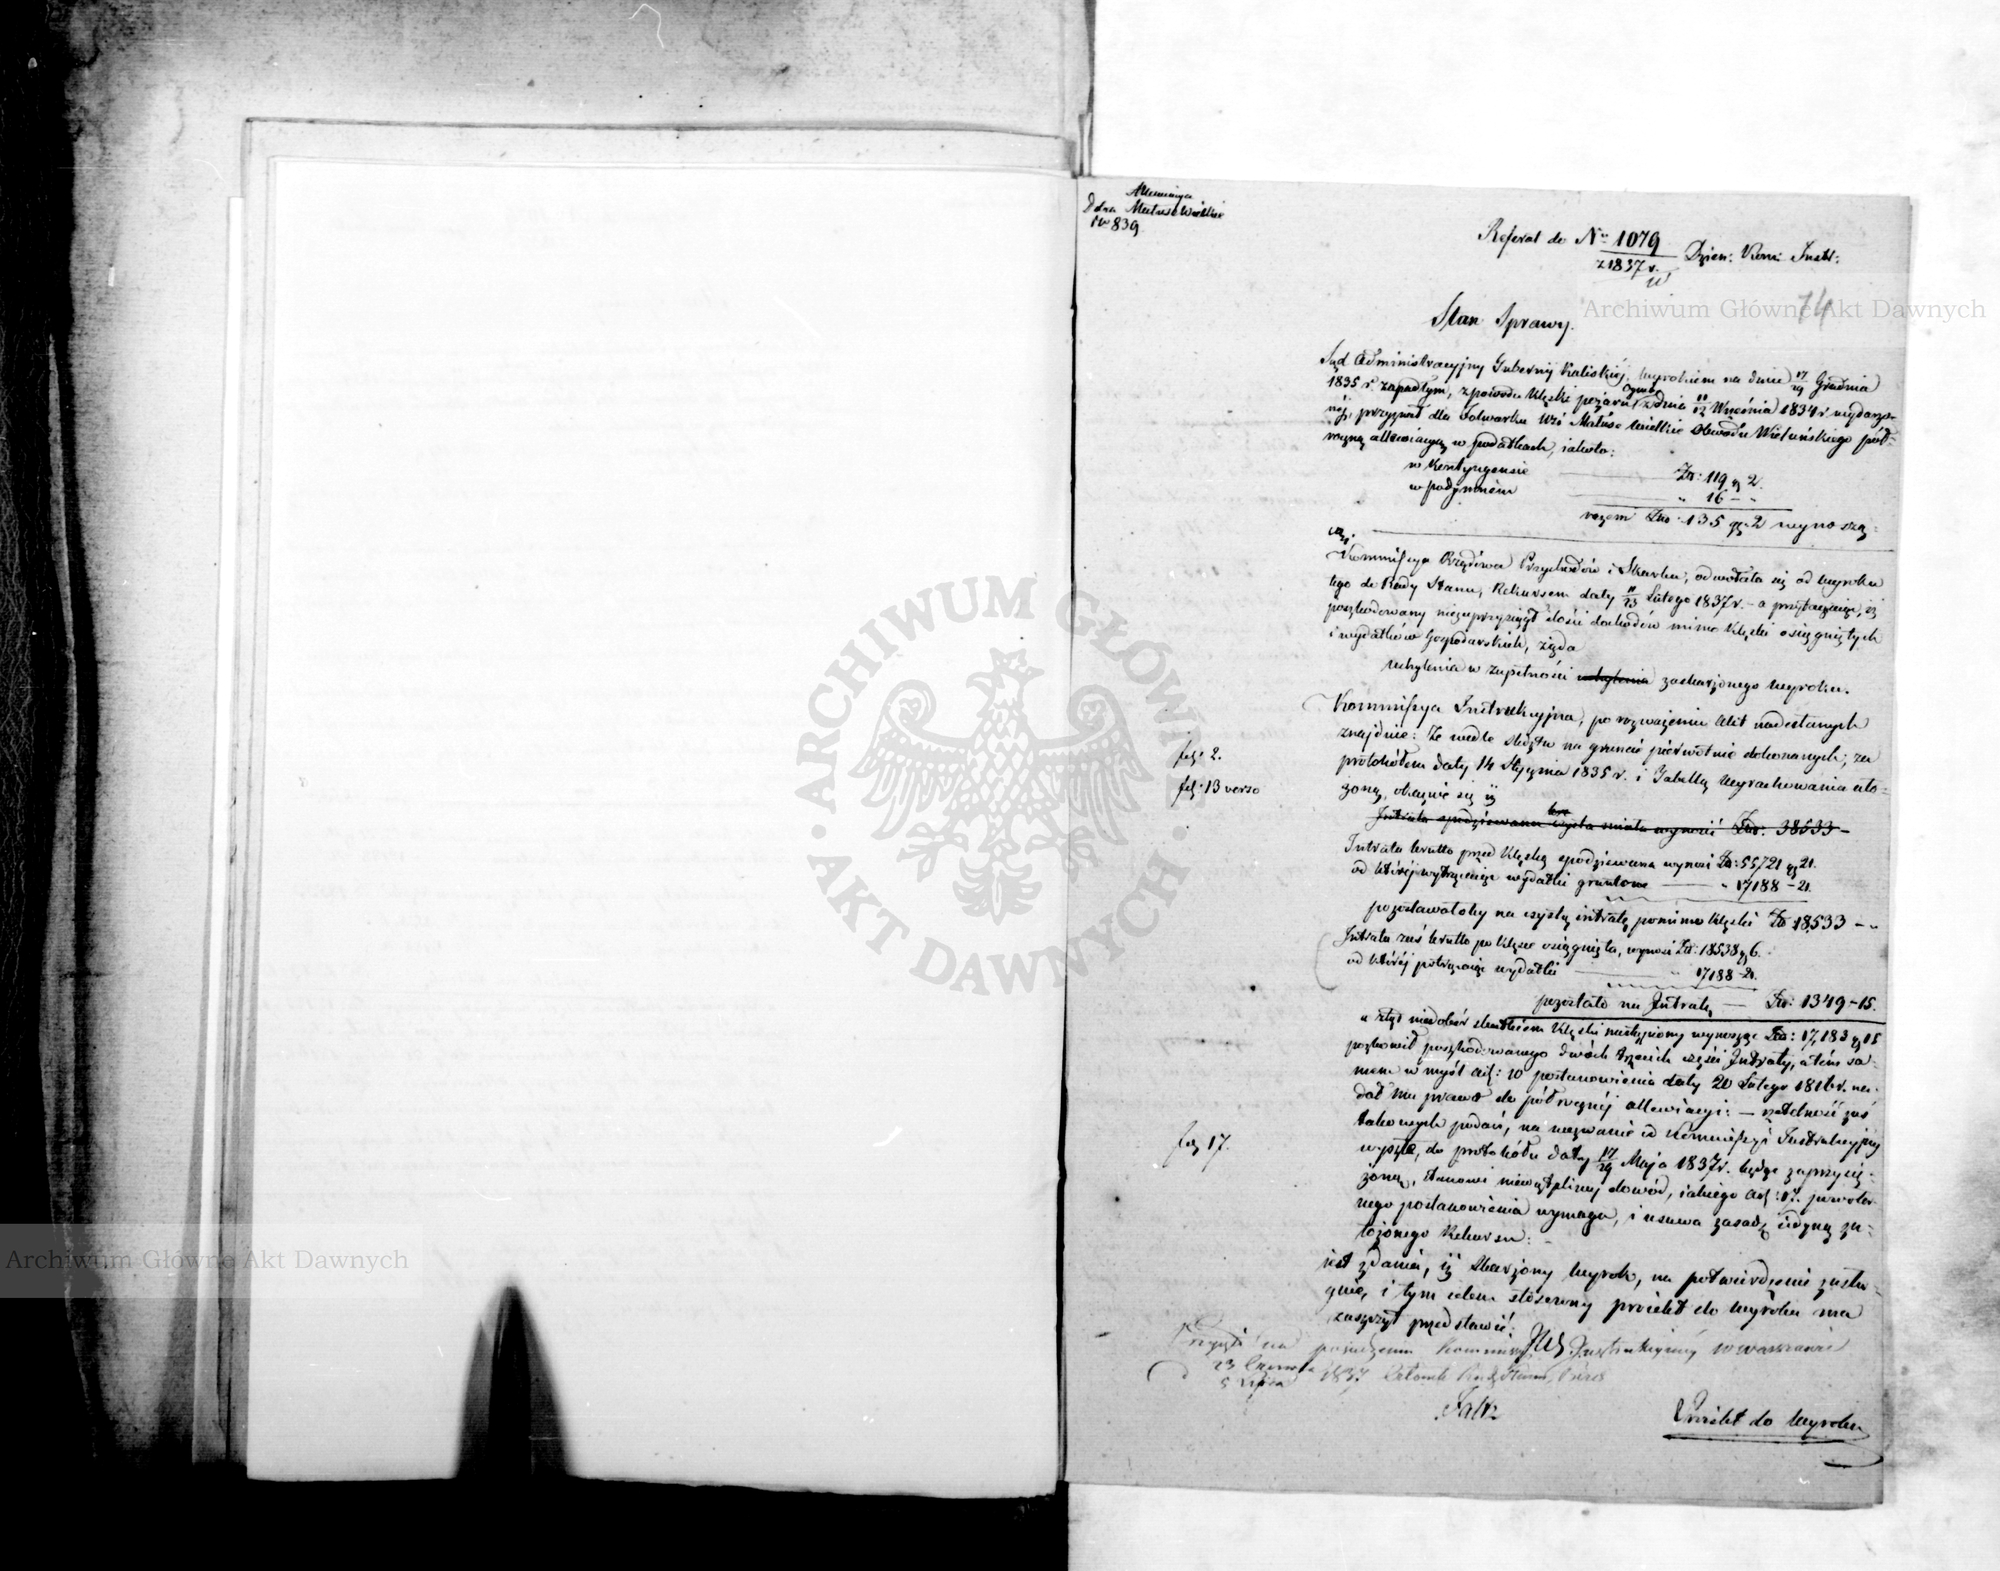 Allewiacya
Dobra Matusz Wielkie
Nr 839
Referat do Nru 1079 Dzien: Kom: Instr:
z 1837 r.
74
Stan Sprawy.
Sąd Administracyjny Gubernij Kaliskiéj, wyrokiem na dniu 17/29 Grudnia
1835 r. zapadłym, z powodu klęski pożaru ogniem z dnia 11/12 Września 1834 r. wydarzo-
néj, przyznał dla folwarku Wsi Matusz Wielkie Obwodu Wieluńskiego pół-
roczną allewiacyą w podatkach, iakoto:
w kontyngensie Złt: 119 g 2.
w podymném „ 16 - „
razem Złt: 135 gr. 2 wynoszą-
cą.
Kommissya Rządowa Przychodów i Skarbu, odwołała się od wyroku
tego do Rady Stanu, Rekursem daty 11/23 Lutego 1837 r. - a przytaczaiąc, iż
poszkodowany niezaprzysiągł ilości dochodów mimo klęski osiągniętych
i wydatków Gospodarskich, żąda
uchylenia w zupełności uchylenia zaskarżonego wyroku.
Kommissya Instrukcyjna, po rozważeniu Akt nadesłanych
znajduie: Że wedle śledztw na gruncie piérwotnie dokonanych, za
fol: 2.
protokółem daty 14 Stycznia 1835 r. i Tabellą wyrachowania uło-
fol: 13 verso
żoną, okazuie się iż
Intrata spodziewana czysta miała wynosić Złt: 38533 -
Intrata brutto przed klęską spodziewana wynosi Zł: 55721 g 21.
od któréj wytrąciwszy wydatki gruntowe „ 17188 - 21.
pozostawałoby na czystą intratę pomimo klęski Zł 18,533 - „
Intrata zaś brutto po klęsce osiągnięta, wynosi Zł: 18538 g 6.
od któréj potrąciwszy wydatki „ 17188 - 21.
pozostało na Intratę Złt: 1349 - 15.
a ztąd niedobór skutkiem klęski nastąpiony wynosząc Złt: 17,183 g 15
pozbawił poszkodowanego dwóch trzecich części Intraty, a tém sa-
mem w myśl art: 10 postanowienia daty 20 Lutego 1816 r. na-
dał mu prawo do półrocznéj allewiacyi: - rzetelność zaś
takowych podań, na wezwanie od Kommissyi Instrukcyjnéj
fol 17.
wyszłe, do protokółu daty 17/29 Maja 1837 r. będąc zaprzysię-
żoną, stanowi niewątpliwy dowód, iakiego art: 17. powoła-
nego postanowienia wymaga, i usuwa zasadę iedyną za-
łożonego Rekursu: -
iest zdania, iż skarżony wyrok, na potwierdzenie zasłu-
guie, i tym celem stosowny proiekt do wyroku ma
zaszczyt przedstawić.
Przyjęto na posiedzeniu Kommissyi Instrukcyjnéj w Warszawie
23 Czerwca
5 Lipca 1837 Członek Rady Stanu, Prezes
Faltz
Proiekt do wyroku
Archiwum Główne Akt Dawnych
Archiwum Główne Akt Dawnych
· ARCHIWUM GŁÓWNE · AKT DAWNYCH